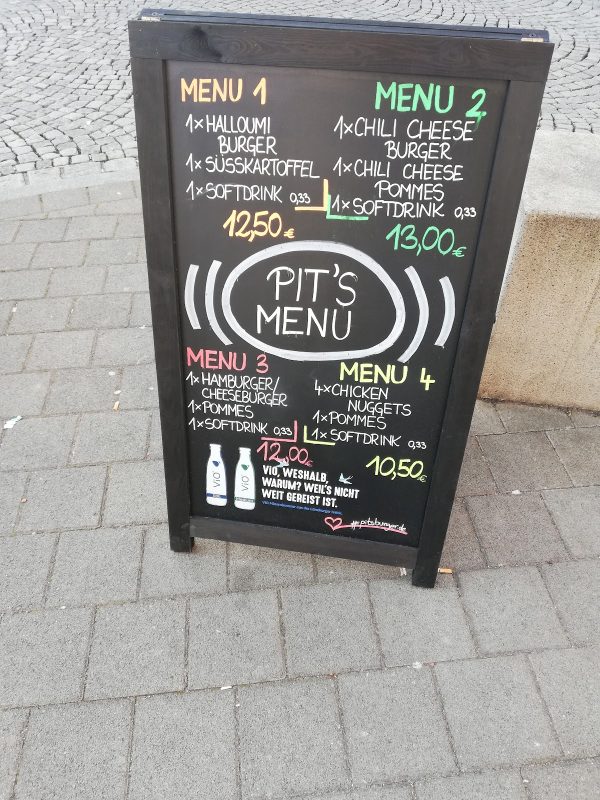 MENU 1
1x HALLOUMI
BURGER
1x SÜSSKARTOFFEL
1x SOFTDRINK 0,33
12,50 €
MENU 2
1x CHILI CHEESE
BURGER
1x CHILI CHEESE
POMMES
1x SOFTDRINK 0,33
13,00 €
PIT'S
MENU
MENU 3
1x HAMBURGER/
CHEESEBURGER
1x POMMES
1x SOFTDRINK 0,33
12,00 €
MENU 4
4x CHICKEN
NUGGETS
1x POMMES
1x SOFTDRINK 0,33
10,50 €
ViO
ViO
ViO, WESHALB,
WARUM? WEIL'S NICHT
WEIT GEREIST IST.
#pitsburger.de